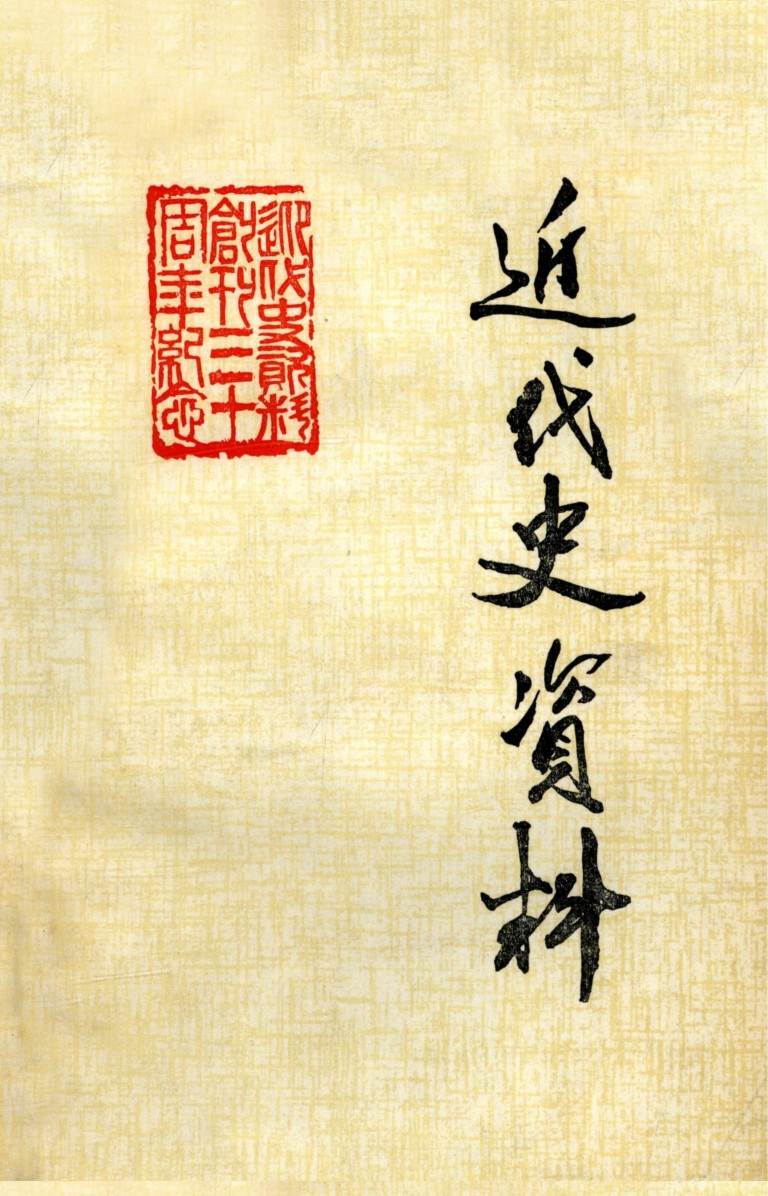 近代史資料
近代史資料
創刊三十
周年紀念